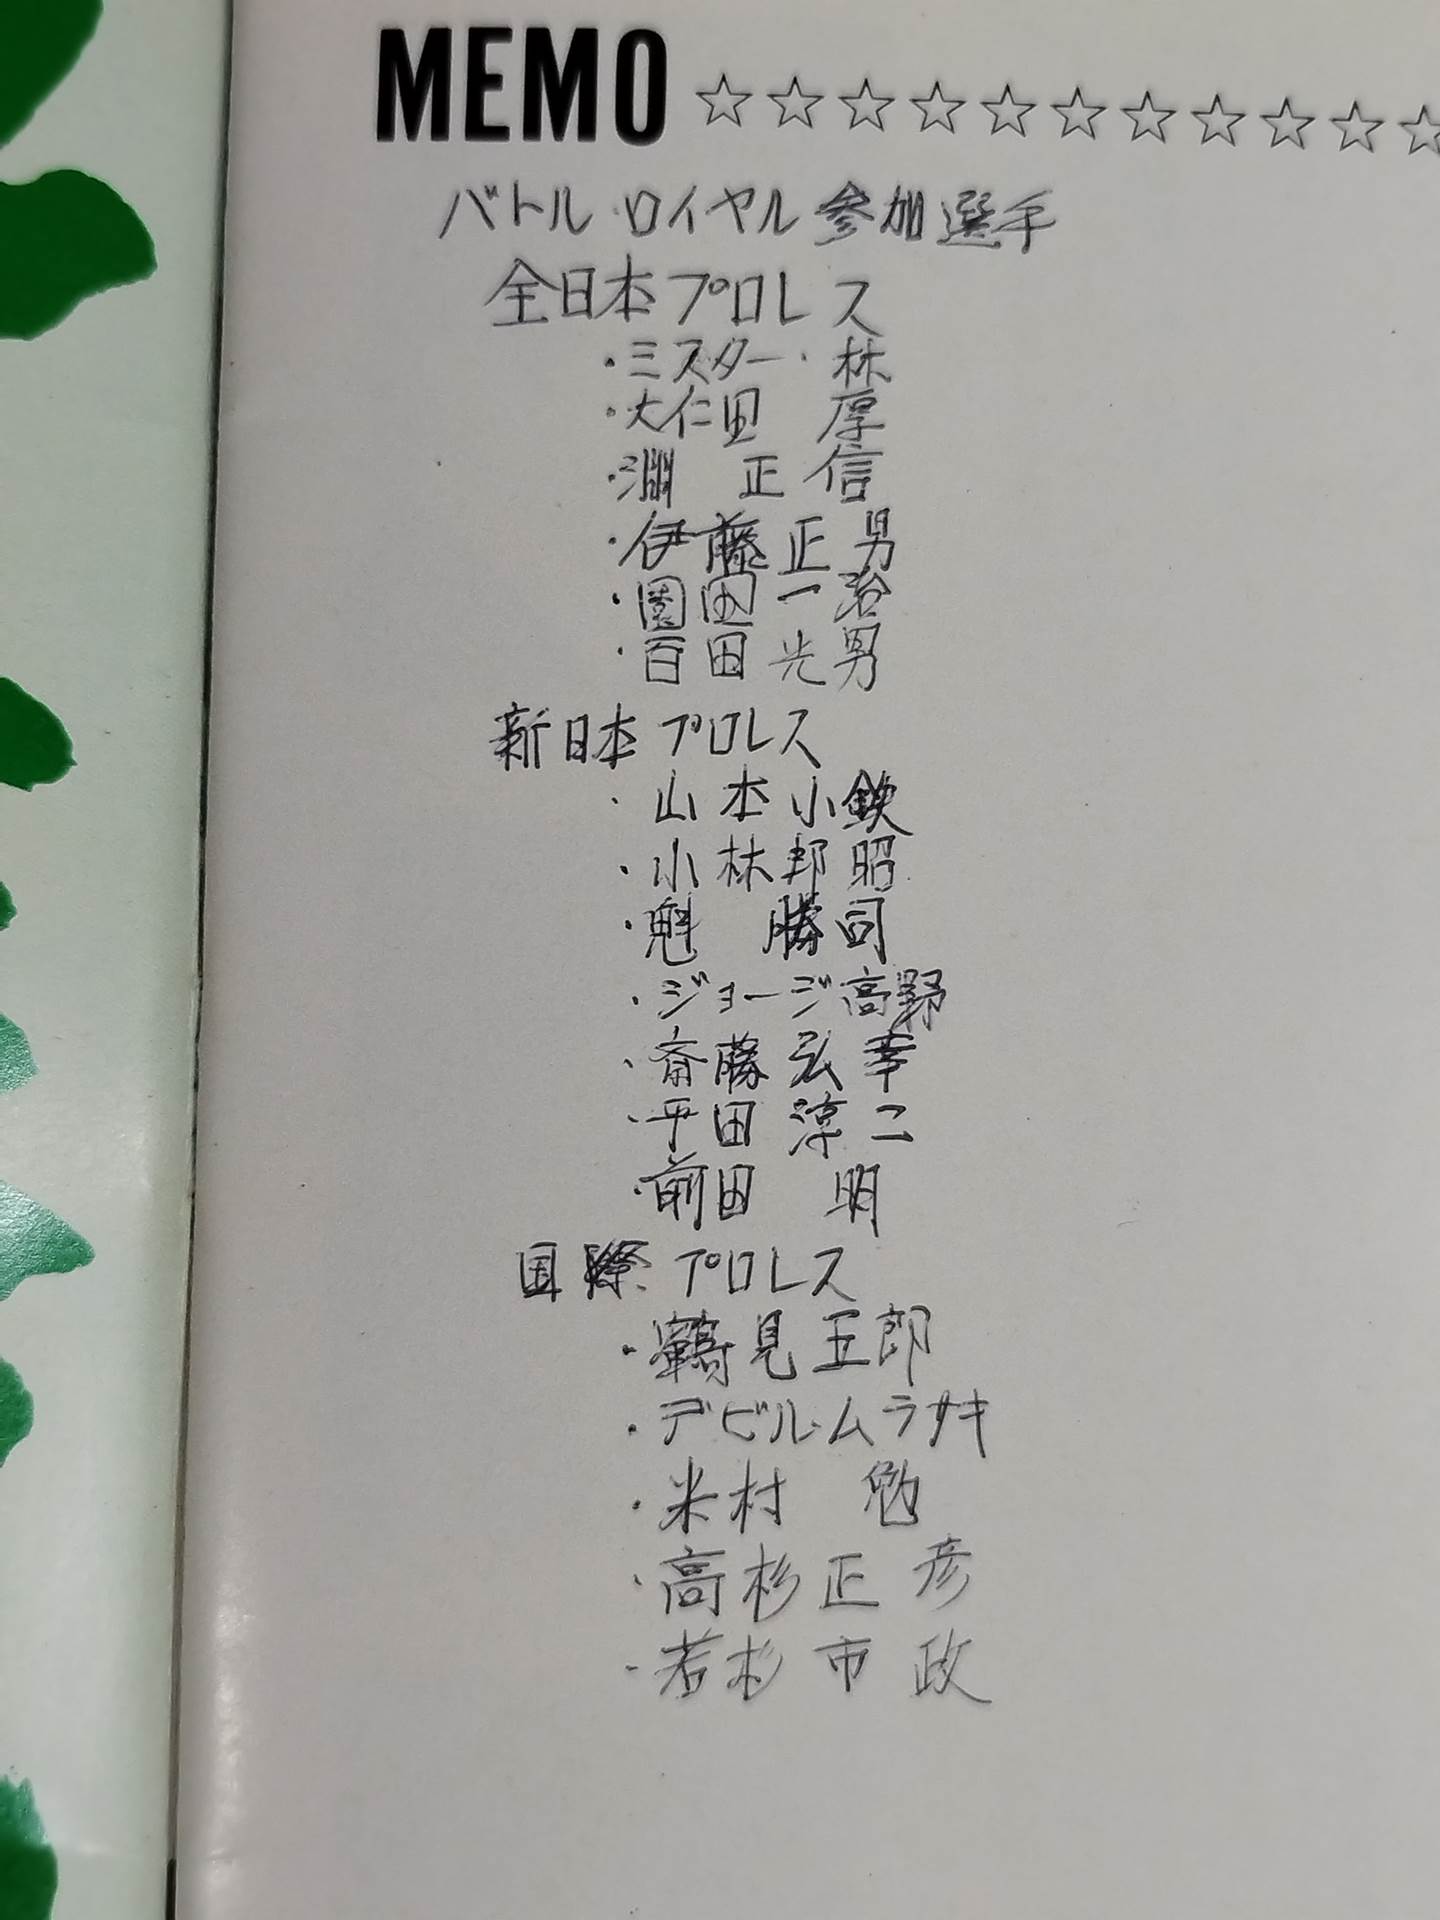 MEMO ☆☆☆☆☆☆☆☆☆☆☆
バトル・ロイヤル参加選手
全日本プロレス
・ミスター・林
・大仁田 厚
・渕 正信
・伊藤正男
・園田一治
・百田光男
新日本プロレス
・山本小鉄
・小林邦昭
・魁 勝司
・ジョージ高野
・斎藤弘幸
・平田淳二
・前田 明
国際プロレス
・鶴見五郎
・デビル・ムラサキ
・米村 勉
・高杉正彦
・若杉市政